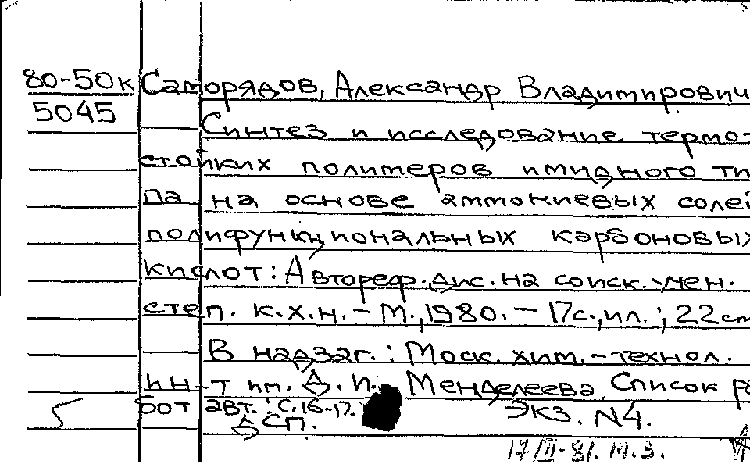 80-50к Саморядов, Александр Владимирович
5045
Синтез и исследование термо-
стойких полимеров имидного ти
па на основе аммониевых солей
полифункциональных карбоновых
кислот: Автореф. дис. на соиск. учен.
степ. к.х.н. - М., 1980. - 17с., ил.; 22см
В надзаг.: Моск. хим.-технол.
ин-т им. Д. И. Менделеева. Список ра
бот авт.: с.16-17. Экз. N4.
СП.
17/II-81. М.З.